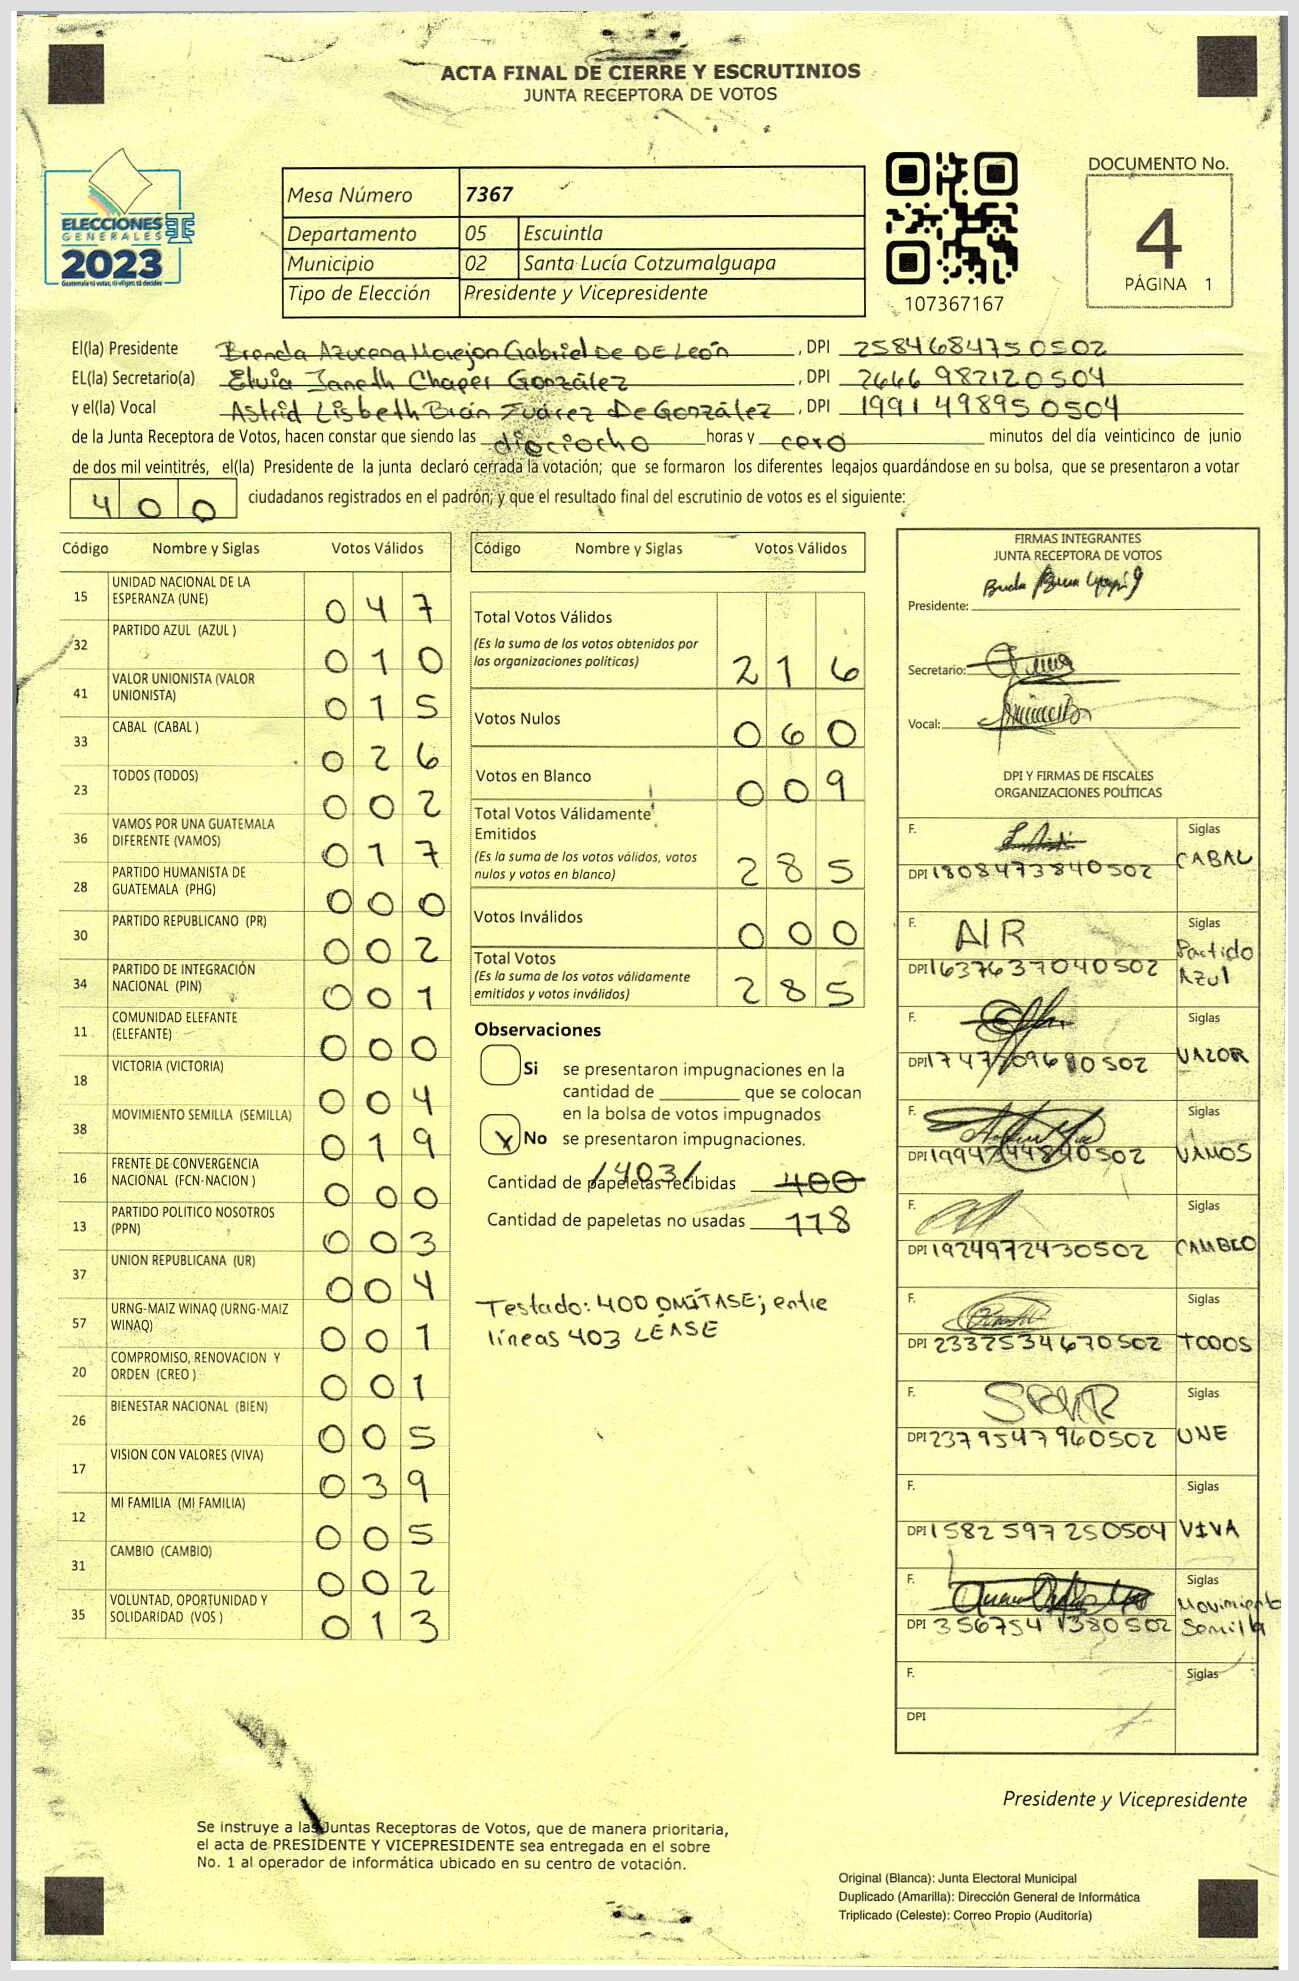 ACTA FINAL DE CIERRE Y ESCRUTINIOS
JUNTA RECEPTORA DE VOTOS
ELECCIONES
GENERALES
2023
Mesa Número 7367
Departamento 05 Escuintla
Municipio 02 Santa Lucía Cotzumalguapa
Tipo de Elección Presidente y Vicepresidente
107367167
DOCUMENTO No.
4
PÁGINA 1
El(la) Presidente Brenda Azucena Morejon Gabriel De DE León, DPI 2584684750502
EL(la) Secretario(a) Elvia Janeth Chaper González, DPI 2646982120504
y el(la) Vocal Astrid Lisbeth Brán Juárez De González, DPI 1991498950504
de la Junta Receptora de Votos, hacen constar que siendo las dieciocho horas y cero minutos del día veinticinco de junio
de dos mil veintitrés, el(la) Presidente de la junta declaró cerrada la votación; que se formaron los diferentes legajos quardándose en su bolsa, que se presentaron a votar
400 ciudadanos registrados en el padrón; y que el resultado final del escrutinio de votos es el siguiente:
Código Nombre y Siglas Votos Válidos
15 UNIDAD NACIONAL DE LA ESPERANZA (UNE) 047
32 PARTIDO AZUL (AZUL ) 010
41 VALOR UNIONISTA (VALOR UNIONISTA) 015
33 CABAL (CABAL ) 026
23 TODOS (TODOS) 002
36 VAMOS POR UNA GUATEMALA DIFERENTE (VAMOS) 017
28 PARTIDO HUMANISTA DE GUATEMALA (PHG) 000
30 PARTIDO REPUBLICANO (PR) 002
34 PARTIDO DE INTEGRACIÓN NACIONAL (PIN) 001
11 COMUNIDAD ELEFANTE (ELEFANTE) 000
18 VICTORIA (VICTORIA) 004
38 MOVIMIENTO SEMILLA (SEMILLA) 019
16 FRENTE DE CONVERGENCIA NACIONAL (FCN-NACION ) 000
13 PARTIDO POLITICO NOSOTROS (PPN) 003
37 UNION REPUBLICANA (UR) 004
57 URNG-MAIZ WINAQ (URNG-MAIZ WINAQ) 001
20 COMPROMISO, RENOVACION Y ORDEN (CREO ) 001
26 BIENESTAR NACIONAL (BIEN) 005
17 VISION CON VALORES (VIVA) 039
12 MI FAMILIA (MI FAMILIA) 005
31 CAMBIO (CAMBIO) 002
35 VOLUNTAD, OPORTUNIDAD Y SOLIDARIDAD (VOS ) 013
Código Nombre y Siglas Votos Válidos
Total Votos Válidos
(Es la suma de los votos obtenidos por
las organizaciones políticas) 216
Votos Nulos 060
Votos en Blanco 009
Total Votos Válidamente
Emitidos
(Es la suma de los votos válidos, votos
nulos y votos en blanco) 285
Votos Inválidos 000
Total Votos
(Es la suma de los votos válidamente
emitidos y votos inválidos) 285
Observaciones
Si se presentaron impugnaciones en la
cantidad de ________ que se colocan
en la bolsa de votos impugnados
X No se presentaron impugnaciones.
/403/
Cantidad de papeletas recibidas 400
Cantidad de papeletas no usadas 118
Testado: 400 OMÍTASE; entre
líneas 403 LÉASE
FIRMAS INTEGRANTES
JUNTA RECEPTORA DE VOTOS
Presidente:
Secretario:
Vocal:
DPI Y FIRMAS DE FISCALES
ORGANIZACIONES POLÍTICAS
F. Siglas
DPI 1808473840502 CABAL
F. AIR Siglas
DPI 1637637040502 Partido Azul
F. Siglas
DPI VALOR
F. Siglas
DPI VAMOS
F. Siglas
DPI 1924972430502 CAMBIO
F. Siglas
DPI 2332534670502 TODOS
F. Siglas
DPI 2379547960502 UNE
F. Siglas
DPI 1582597250504 VIVA
F. Siglas
DPI 3567541380502 Movimiento Semilla
F. Siglas
DPI
Presidente y Vicepresidente
Se instruye a las Juntas Receptoras de Votos, que de manera prioritaria,
el acta de PRESIDENTE Y VICEPRESIDENTE sea entregada en el sobre
No. 1 al operador de informática ubicado en su centro de votación.
Original (Blanca): Junta Electoral Municipal
Duplicado (Amarilla): Dirección General de Informática
Triplicado (Celeste): Correo Propio (Auditoría)